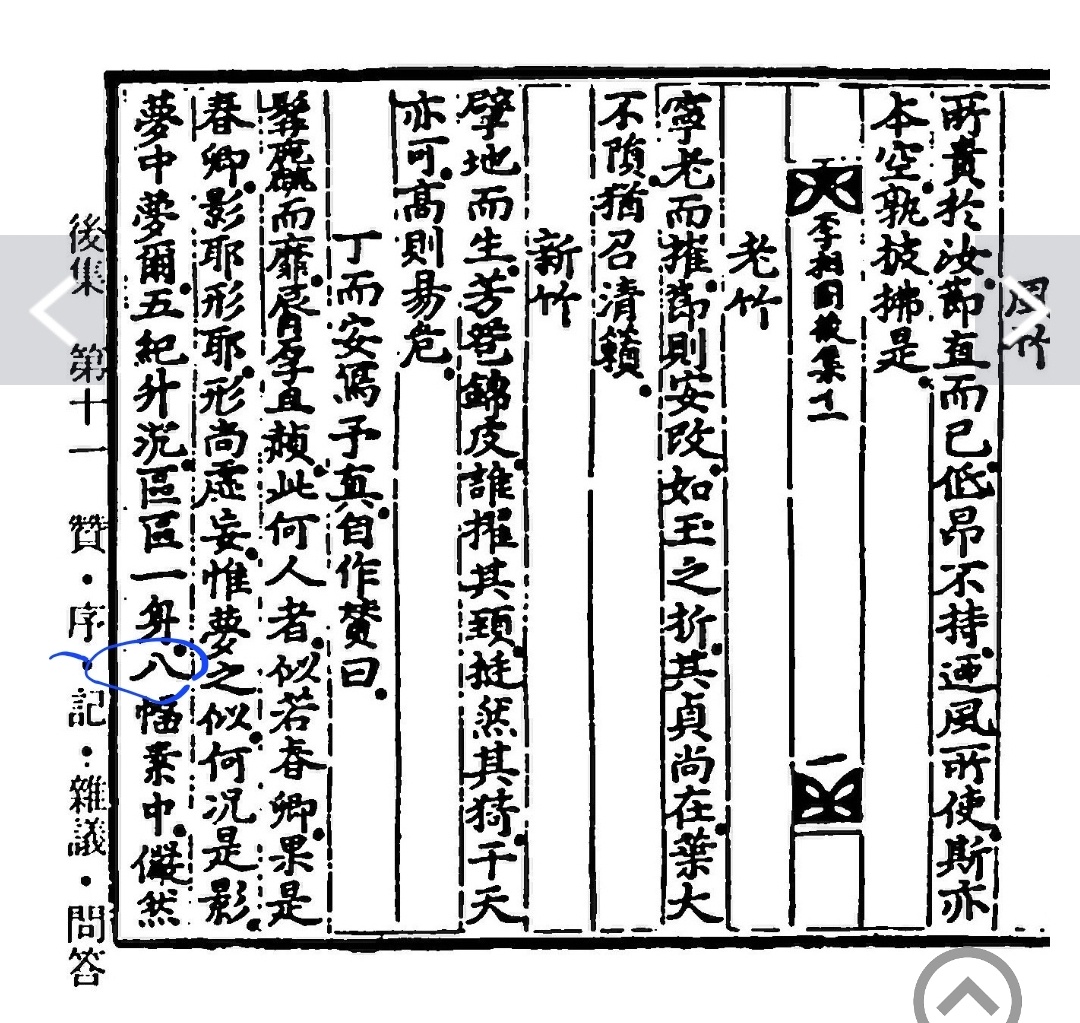 風竹
所貴於汝節直而已低昂不持迺風所使斯亦
本空孰披拂是
李相國後集十一 一
老竹
寧老而摧節則安改如玉之折其貞尚在葉大
不隕猶召清籟
新竹
擘地而生芳苞錦皮誰擢其頸挺然其猗干天
亦可高則易危
丁而安寫予真自作贊曰
髯而靡脣厚且赬此何人者似若春卿果是
春卿影耶形耶形尚虛妄惟夢之似何況是影
夢中夢爾五紀升沉區區一身八幅素中儼然
後集 第十一 贊·序·記·雜議·問答